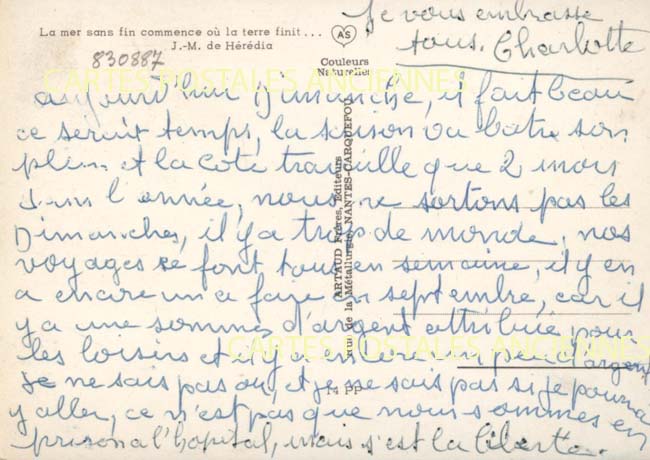 La mer sans fin commence où la terre finit...
J.-M. de Hérédia
830887
AS
Couleurs
Naturelles
CARTES POSTALES ANCIENNES
Je vous embrasse
tous. Charlotte
aujourd'hui Dimanche, il fait beau
ce serait temps, la saison va batre son
plein et la cote travaille que 2 mois
dans l'année, nous ne sortons pas les
Dimanches, il y a trop de monde, nos
voyages se font tous en semaine, il y en
a encore un a faire en septembre, car il
y a une somme d'argent attribuée pour
les loisirs et il y a encore un peu d'argent
je ne sais pas ou, et je ne sais pas si je pourrai
y aller, ce n'est pas que nous sommes en
prison a l'hopital, mais s'est la liberté.
ARTAUD Frères, Editeurs
rue de la Métallurgie, NANTES-CARQUEFOU
14 PP
CARTES POSTALES ANCIENNES